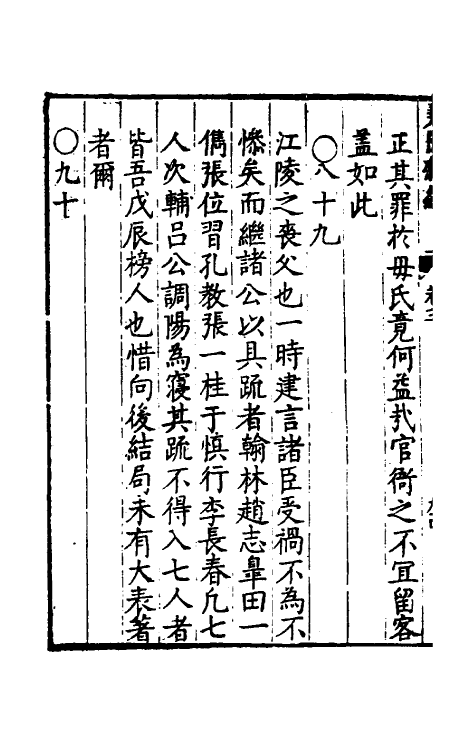 正其罪於毋氏竟何益哉官衙之不宜留客
蓋如此
〇八十九
江陵之喪父也一時建言諸臣受禍不為不
慘矣而繼諸公以具疏者翰林趙志臯田一
儁張位習孔教張一桂于慎行李長春凢七
人次輔呂公調陽為寢其疏不得入七人者
皆吾戊辰榜人也惜向後結局未有大表著
者爾
〇九十